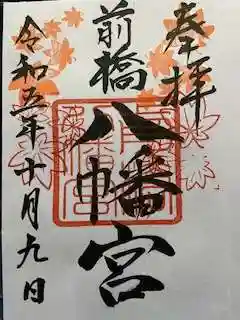 奉拝
前橋
八幡宮
令和五年十月九日